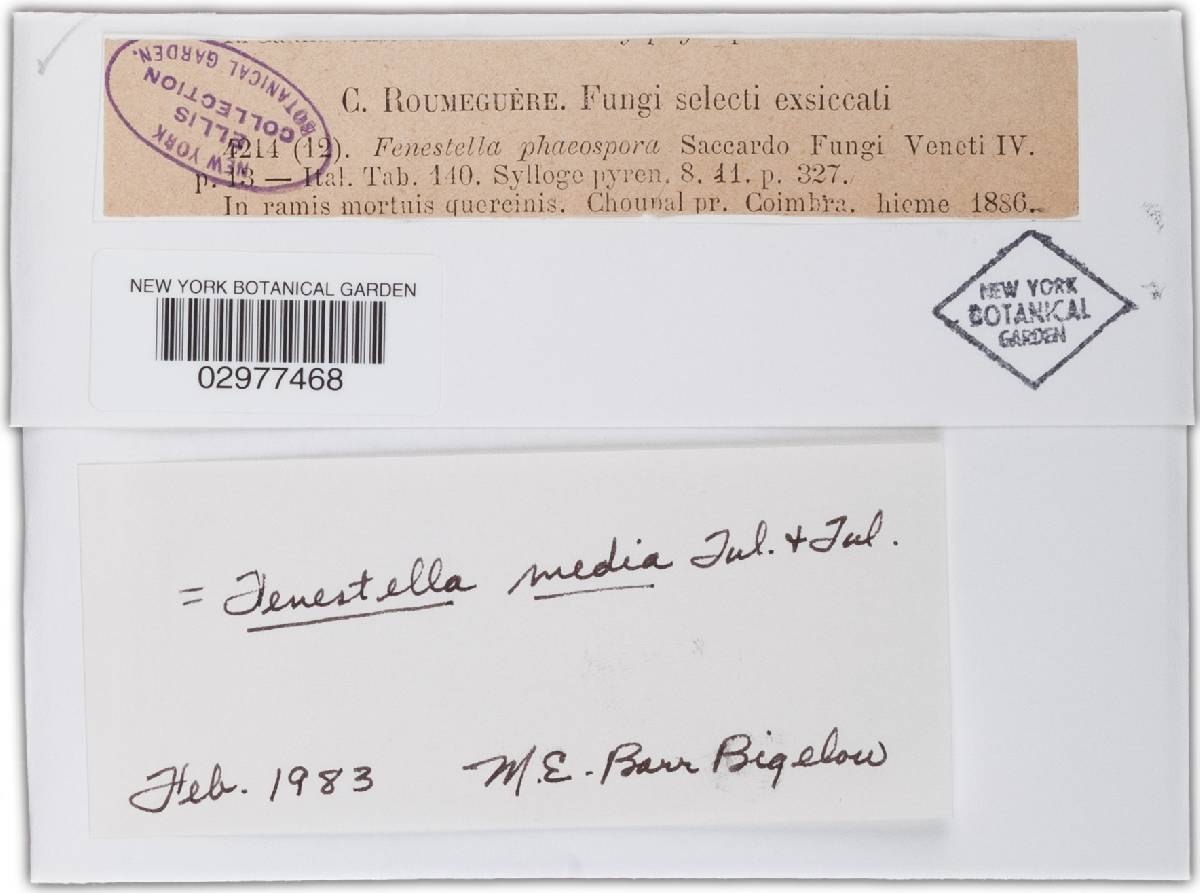 C. ROUMEGUÈRE. Fungi selecti exsiccati
4214 (12). Fenestella phaeospora Saccardo Fungi Veneti IV.
p. 13 — Ital. Tab. 140. Sylloge pyren. 8. 11. p. 327.
In ramis mortuis quercinis. Choupal pr. Coimbra. hieme 1886.
NEW YORK
BOTANICAL GARDEN.
ELLIS
COLLECTION
NEW YORK BOTANICAL GARDEN
02977468
NEW YORK
BOTANICAL
GARDEN
= Fenestella media Tul. + Tul.
Feb. 1983 M.E. Barr Bigelow